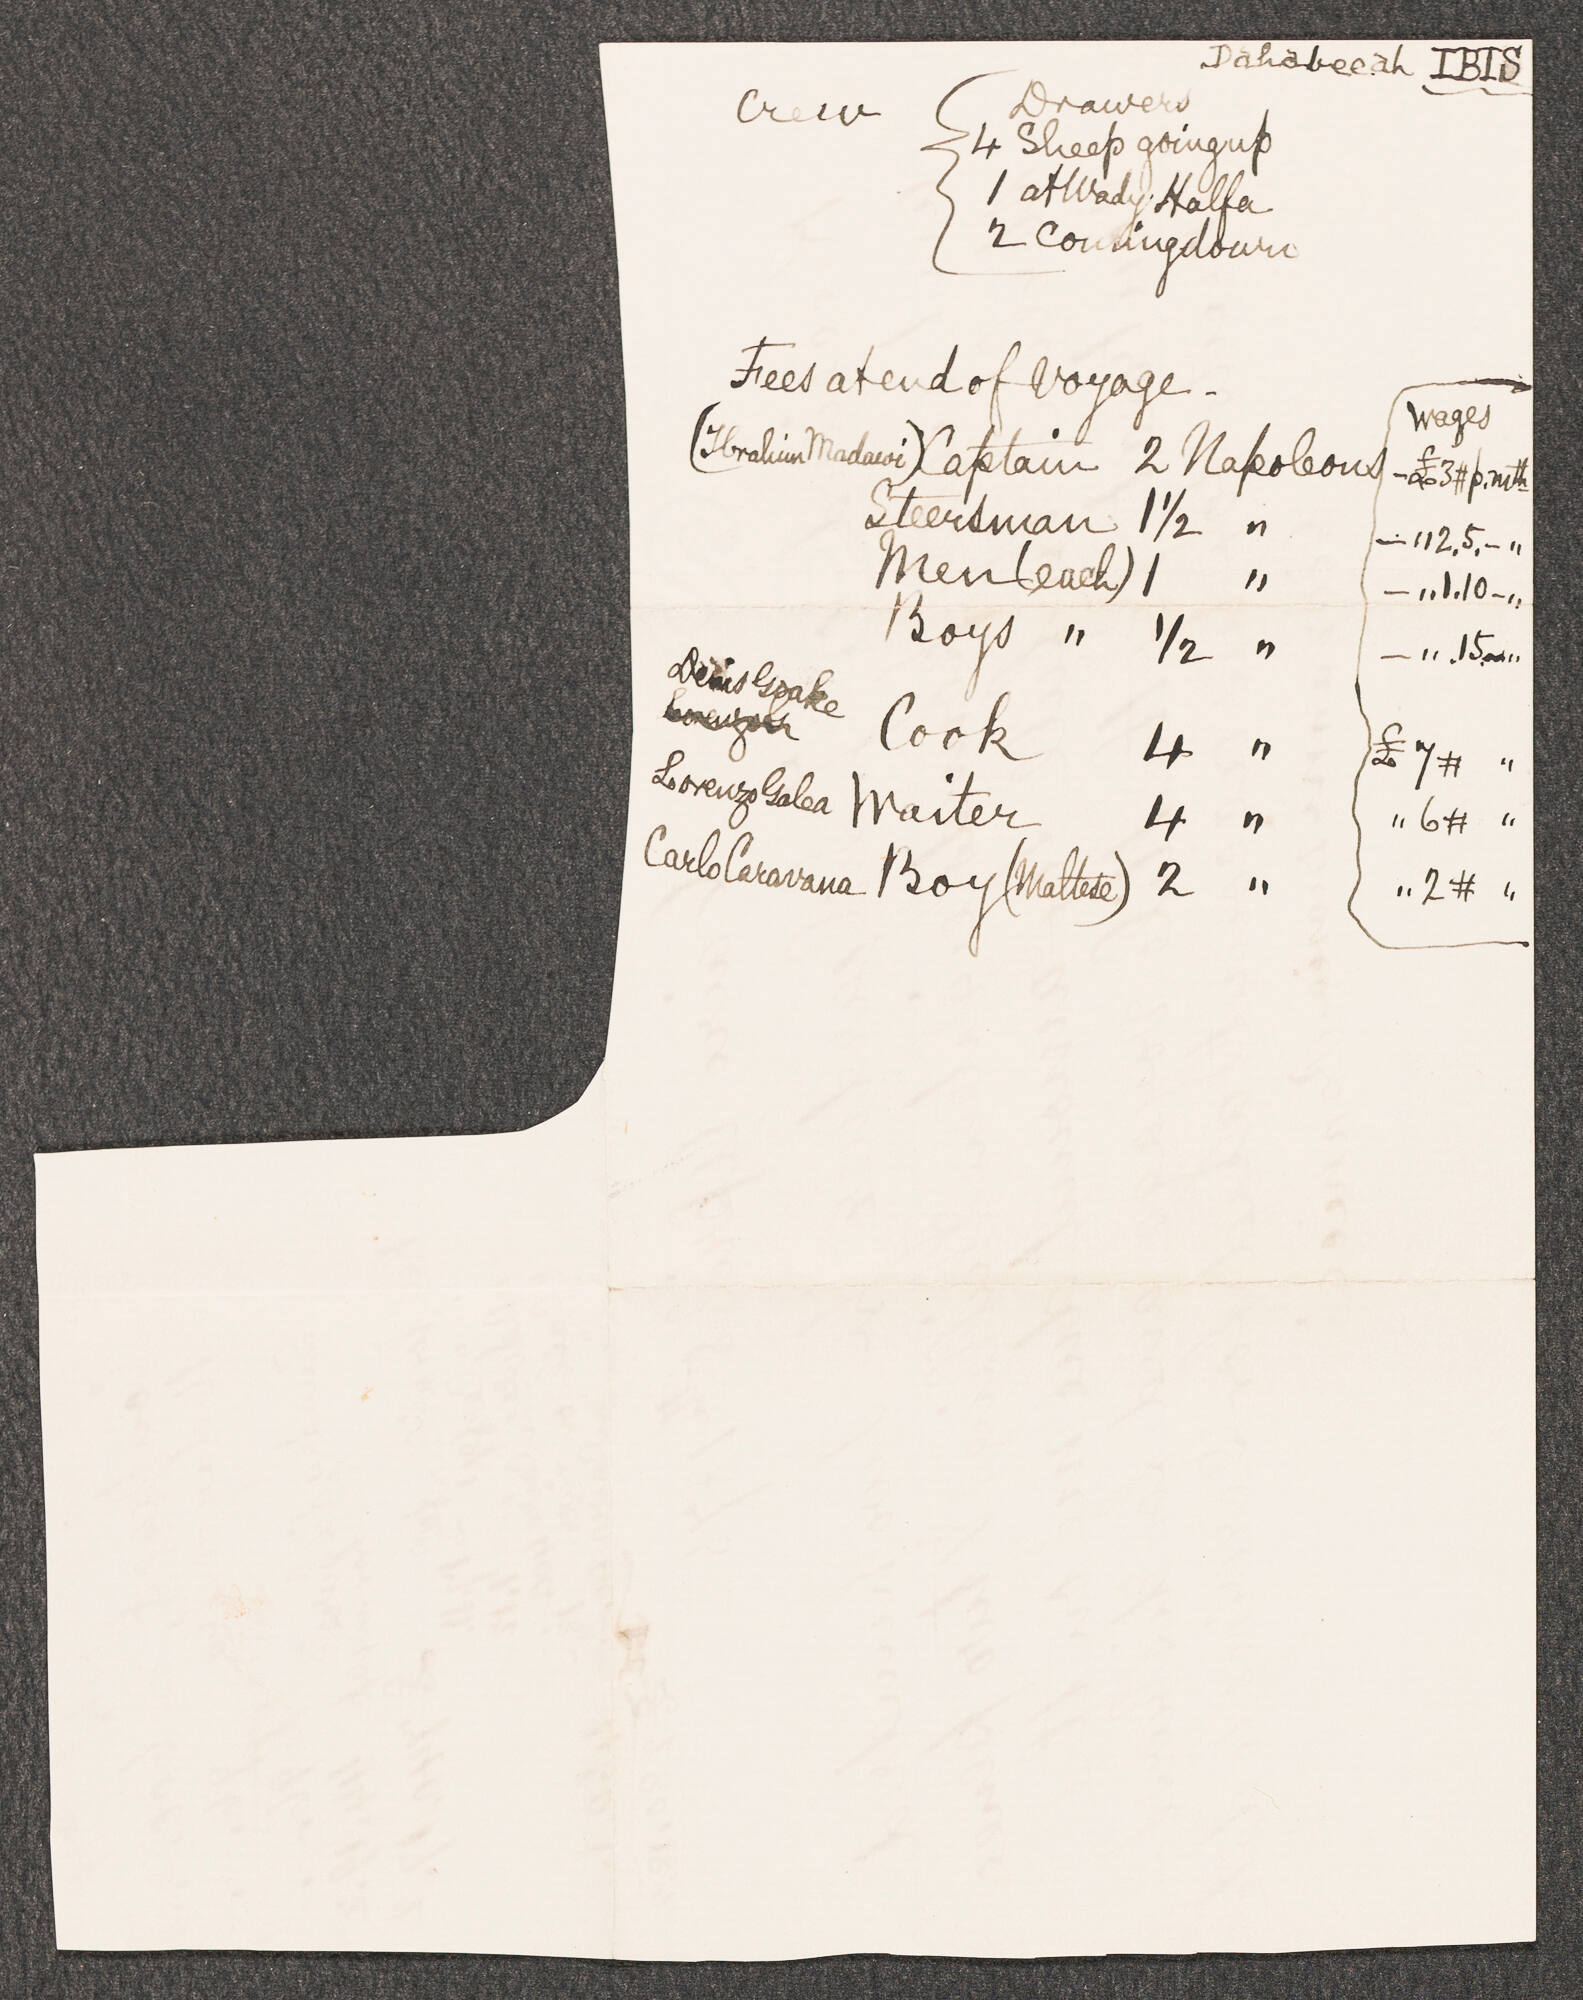 Dahabeeah IBIS
Crew { Drawers
4 Sheep going up
1 at Wady Halfa
2 Coming down
Fees at end of Voyage -
Wages
(Ibrahim Madawi) Captain 2 Napoleons - £3 # p. mth
Steersman 1 1/2 " - " 2.5.- "
Men (each) 1 " - " 1.10 - "
Boys " 1/2 " - " .15 - "
Denis Gpake
Cook 4 " £ 7 # "
Lorenzo Galea Waiter 4 " " 6 # "
Carlo Caravana Boy (Maltese) 2 " " 2 # "